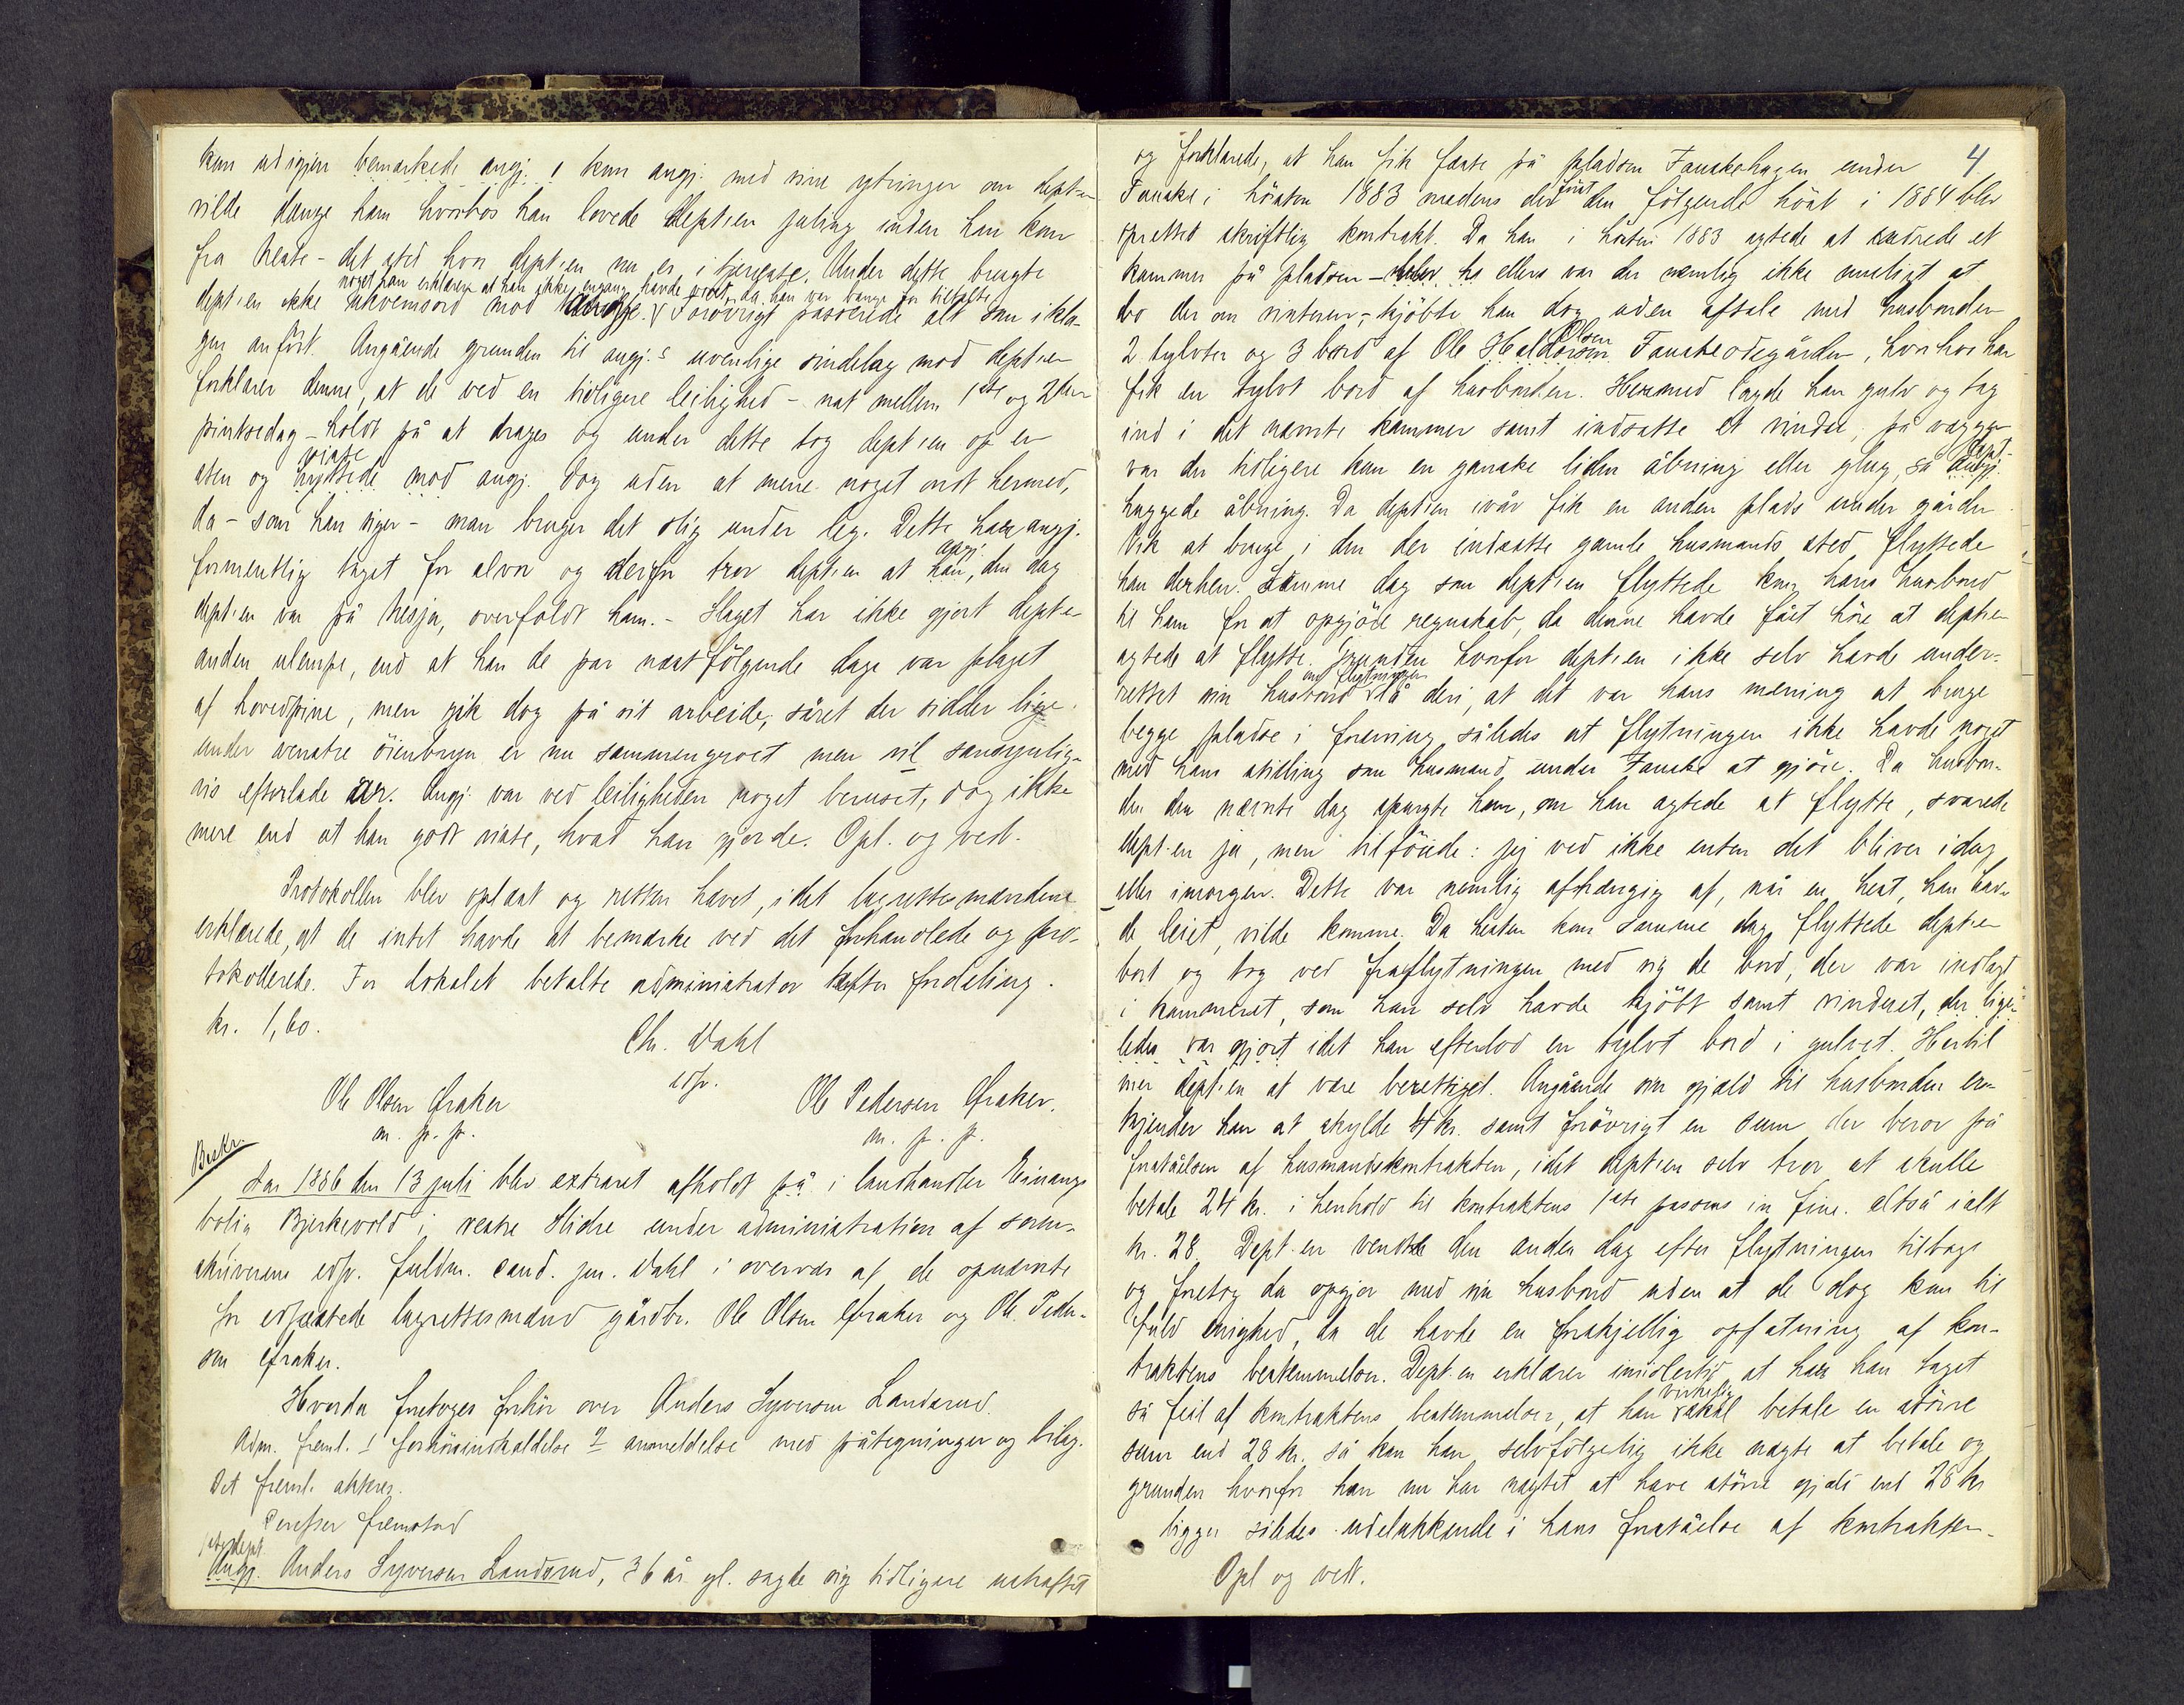 kun ad igjen bemærkede angj. kun angj. med sine ytringer om dept.en
vilde dænge ham hvorhos han lovede dept.en juling inden han kom
fra Neste - det sted hvor dept.en nu er i tjeneste. Under dette brugte
noget han erklærer at han ikke engang havde vovet, da han var bange for tiltalte
dept.en ikke ukvemsord mod angj. Forøvrigt passerede alt som i kla-
gen anført. Angående grunden til angj.s uvenlige sindelag mod dept.en
forklarer denne, at de ved en tidligere leilighed - nat mellem 1ste og 2den
pintsedag - holdt på at drages og under dette tog dept.en op en
viste
sten og hyttede mod angj. dog uden at mene noget ondt hermed,
da - som han siger - man bruger det slig under leg. Dette har angj.
formentlig taget for alvor og derfor tror dept.en at
angj.
han, den dag
dept.en var på Nesja, overfaldt ham. - Slaget har ikke gjort dept.en
anden ulempe, end at han de par næstfølgende dage var plaget
af hovedpine, men gik dog på sit arbeide, såret der sidder lige
under venstre öienbryn er nu sammengroet men vil sandsynlig-
vis efterlade ar. Angj. var ved leiligheden noget beruset, dog ikke
mere end at han godt vidste, hvad han gjorde. Opl. og vedt.
Protokollen blev oplæst og retten hævet, idet lagrettesmændene
erklærede, at de intet havde at bemærke ved det forhandlede og pro-
tokollerede. For lokalet betalte administrator efter fordeling
kr. 1,60.
Chr. Dahl
edsv.
Ole Olsen Øraker
m. p. p.
Ole Pedersen Øraker.
m. p. p.
Beskr.
Aar 1886 den 13 juli blev extraret afholdt på i landhandler Einangs
bolig Bjerkevold i vestre Slidre under administration af soren-
skriverens edsv. fuldm. cand. jur. Dahl i overvær af de opnævnte
før edfæstede lagrettesmænd gårdbr. Ole Olsen Øraker og Ole Peder-
sen Øraker.
Hvorda foretoges forhör over Anders Syversen Landsrud.
Adm. freml. 1 forhörsindkaldelse 2 anmeldelse med påtegninger og bilag.
Det freml. akteres.
Derefter fremstod
1ste dept.
Angj. Anders Syversen Landsrud, 36 år gl. sagde sig tidligere ustraffet
4
og forklarede, at han fik fæste på pladsen Fauskehagen under
Fauske i hösten 1883 medens der
först
den fölgende höst i 1884 blev
oprettet skriftlig kontrakt. Da han i hösten 1883 agtede at indrede et
kammer på pladsen - ellers var der nemlig ikke muligt at
bo der om vinteren, - kjöbte han dog uden aftale med husbonden
2 tylvter og 3 bord af Ole
Olsen
Haldorsen Fauskeödegården, hvorhos han
fik en tylvt bord af husbonden. Hermed lagde han gulv og tag
ind i det nævnte kammer samt indsatte et vindu, på væggen
var der tidligere kun en ganske liden åbning eller glug, så
dept.
angj.
huggede åbning. Da dept.en ivår fik en anden plads under gården
Vik at bruge i den der indsatte gamle husmands sted, flyttede
han derhen. Samme dag som dept.en flyttede kom hans husbond
til ham for at opgjöre regnskab, da denne havde fået höre at dept.en
agtede at flytte. Grunden hvorfor dept.en ikke selv havde under-
rettet sin husbond
om flytningen
lå deri, at det var hans mening at bruge
begge pladse i forening således at flytningen ikke havde noget
med hans stilling som husmand under Fauske at gjöre. Da husbon-
den den nævnte dag spurgte ham, om han agtede at flytte, svarede
dept.en ja, men tilföiede: jeg ved ikke enten det bliver idag
eller imorgen. Dette var nemlig afhængig af, når en hest, han hav-
de leiet, vilde komme. Da hesten kom samme dag, flyttede dept.en
bort og tog ved fraflytningen med sig de bord, der var indlagt
i kammeret, som han selv havde kjöbt samt vinduet, der lige-
ledes var gjort idet han efterlod en tylvt bord i gulvet. Hertil
mener dept.en at være berettiget. Angående sin gjæld til husbonden er-
kjender han at skylde 4 kr. samt forövrigt en sum der beror på
forståelsen af husmandskontrakten, idet dept.en selv tror at skulle
betale 24 kr. i henhold til kontraktens 1ste passus in fine. altså ialt
kr. 28. Dept.en vendte den anden dag efter flytningen tilbage
og foretog da opgjör med sin husbond uden at de dog kom til
fuld enighed, da de havde en forskjellig opfatning af kon-
traktens bestemmelser. Dept.en erklærer imidlertid at har han taget
så feil af kontraktens bestemmelser, at han
virkelig
skal betale en större
sum end 28 kr. så kan han selvfölgelig ikke nægte at betale og
grunden hvorfor han nu har nægtet at have större gjæld end 28 kr
ligger således udelukkende i hans forståelse af kontrakten.
Opl og vedt.